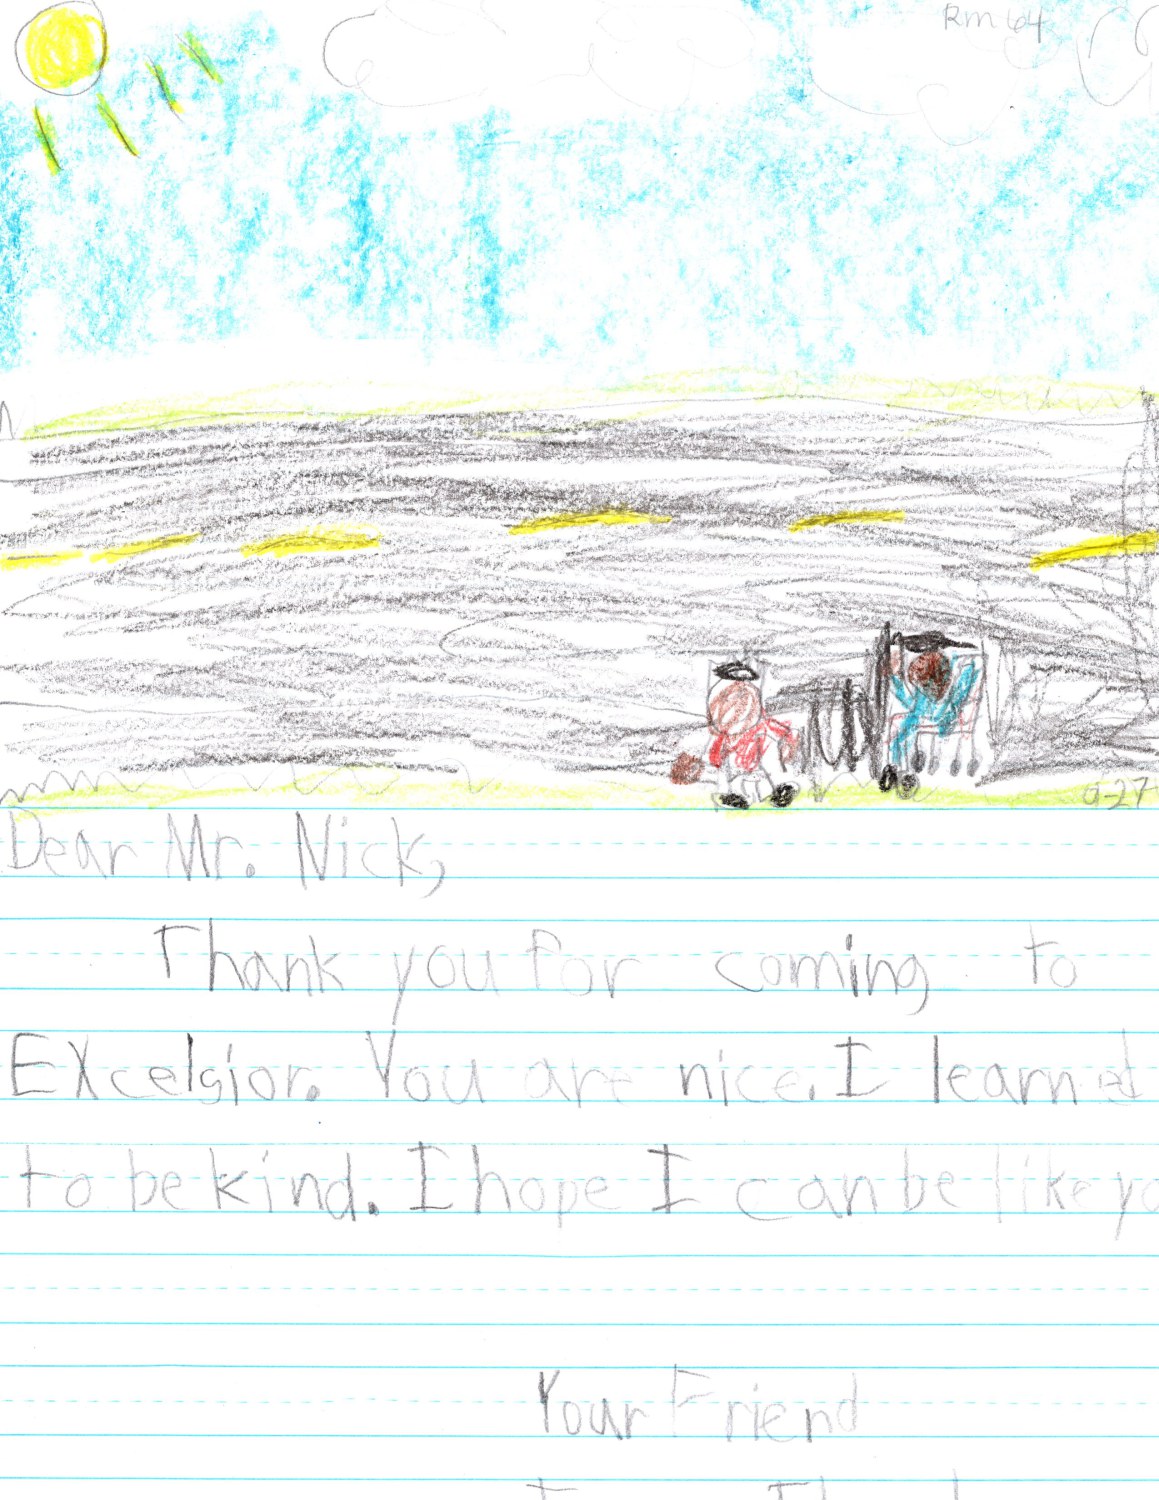 Rm 64
9-27
Dear Mr. Nick,
Thank you for coming to
Excelsior. You are nice. I learned
to be kind. I hope I can be like yo
Your Friend